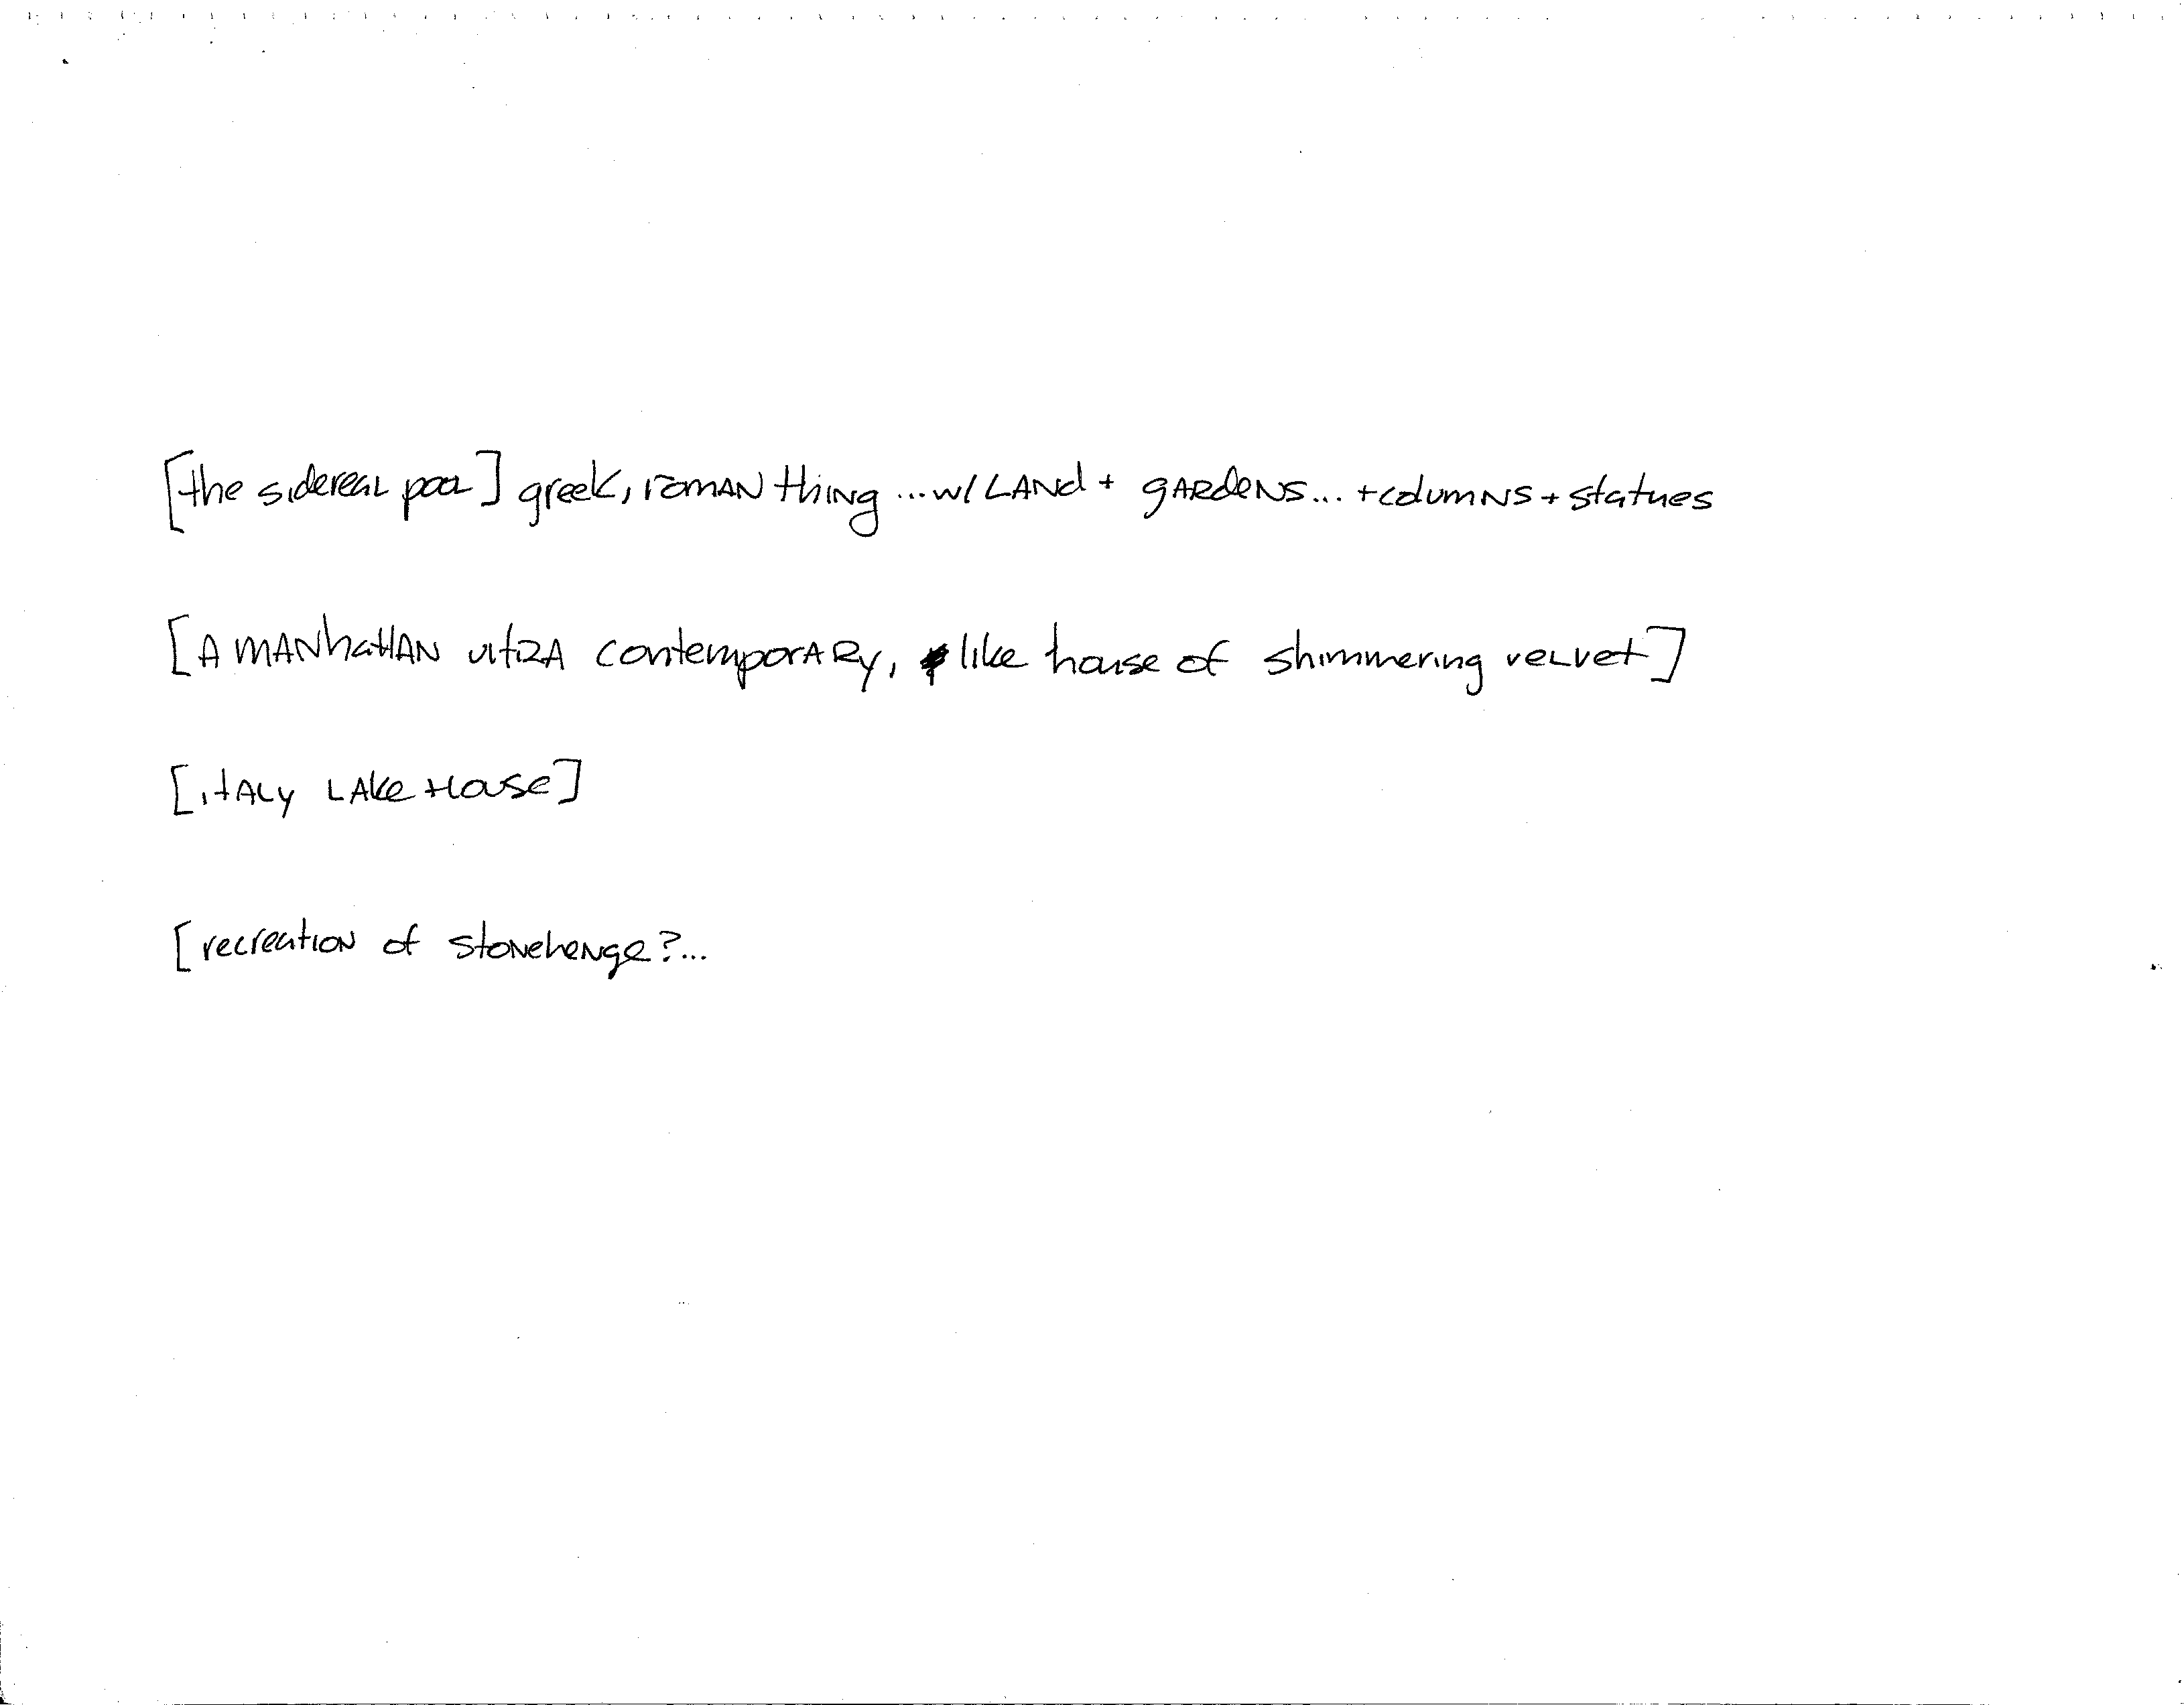 [the sidereal pool] greek, roman thing ...w/ LANd + gARdeNS... + columNS + statues
[A mANhattAN ultRA contemporARy, like house of shimmering veLvet]
[itALy LAke House]
[recreation of stoNeheNge?...